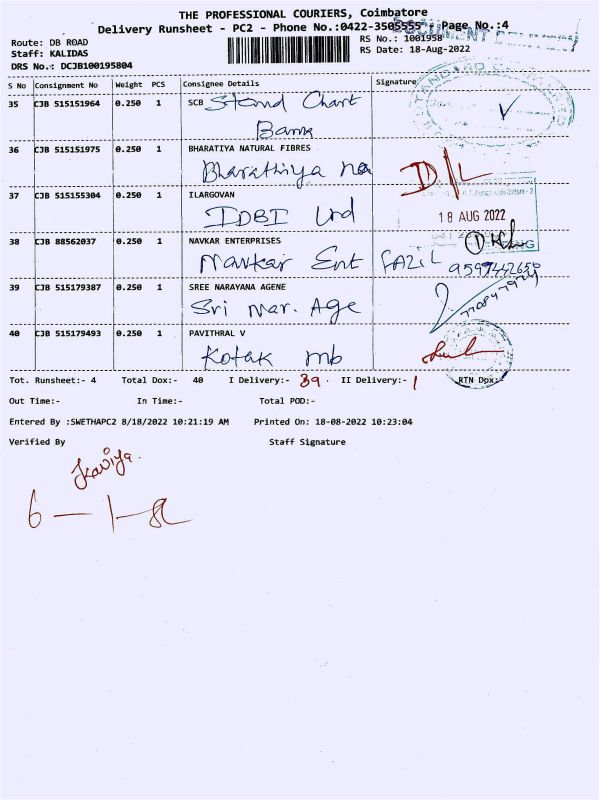 THE PROFESSIONAL COURIERS, Coimbatore
Delivery Runsheet - PC2 - Phone No.:0422-3505555 - Page No.:4
DOCUMENT DELIVERY
Route: DB ROAD RS No.: 1001958
Staff: KALIDAS RS Date: 18-Aug-2022
DRS No.: DCJB100195804
S No Consignment No Weight PCS Consignee Details Signature
35 CJB 515151964 0.250 1 SCB Stand Chart
Bank
36 CJB 515151975 0.250 1 BHARATIYA NATURAL FIBRES
Bharathiya na D/L
37 CJB 515155304 0.250 1 ILARGOVAN
IDBI Lrd 18 AUG 2022
38 CJB 88562037 0.250 1 NAVKAR ENTERPRISES
Navkar Ent FAZIL
39 CJB 515179387 0.250 1 SREE NARAYANA AGENE
Sri Nar. Age
40 CJB 515179493 0.250 1 PAVITHRAL V
Kotak mb
Tot. Runsheet:- 4 Total Dox:- 40 I Delivery:- 39 II Delivery:- 1 RTN Dox:-
Out Time:- In Time:- Total POD:-
Entered By :SWETHAPC2 8/18/2022 10:21:19 AM Printed On: 18-08-2022 10:23:04
Verified By Staff Signature
Kaviya.
6 - 1 -